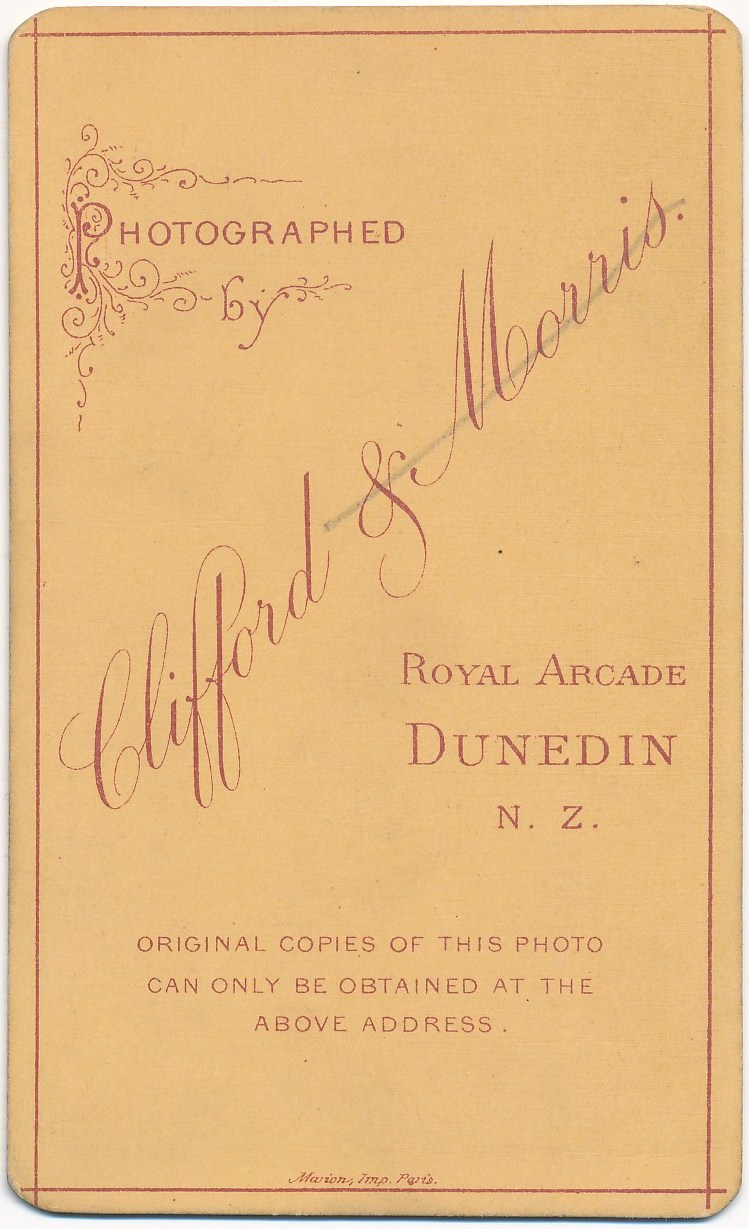 PHOTOGRAPHED
by
Clifford & Morris.
ROYAL ARCADE
DUNEDIN
N. Z.
ORIGINAL COPIES OF THIS PHOTO
CAN ONLY BE OBTAINED AT THE
ABOVE ADDRESS.
Marion, Imp. Paris.